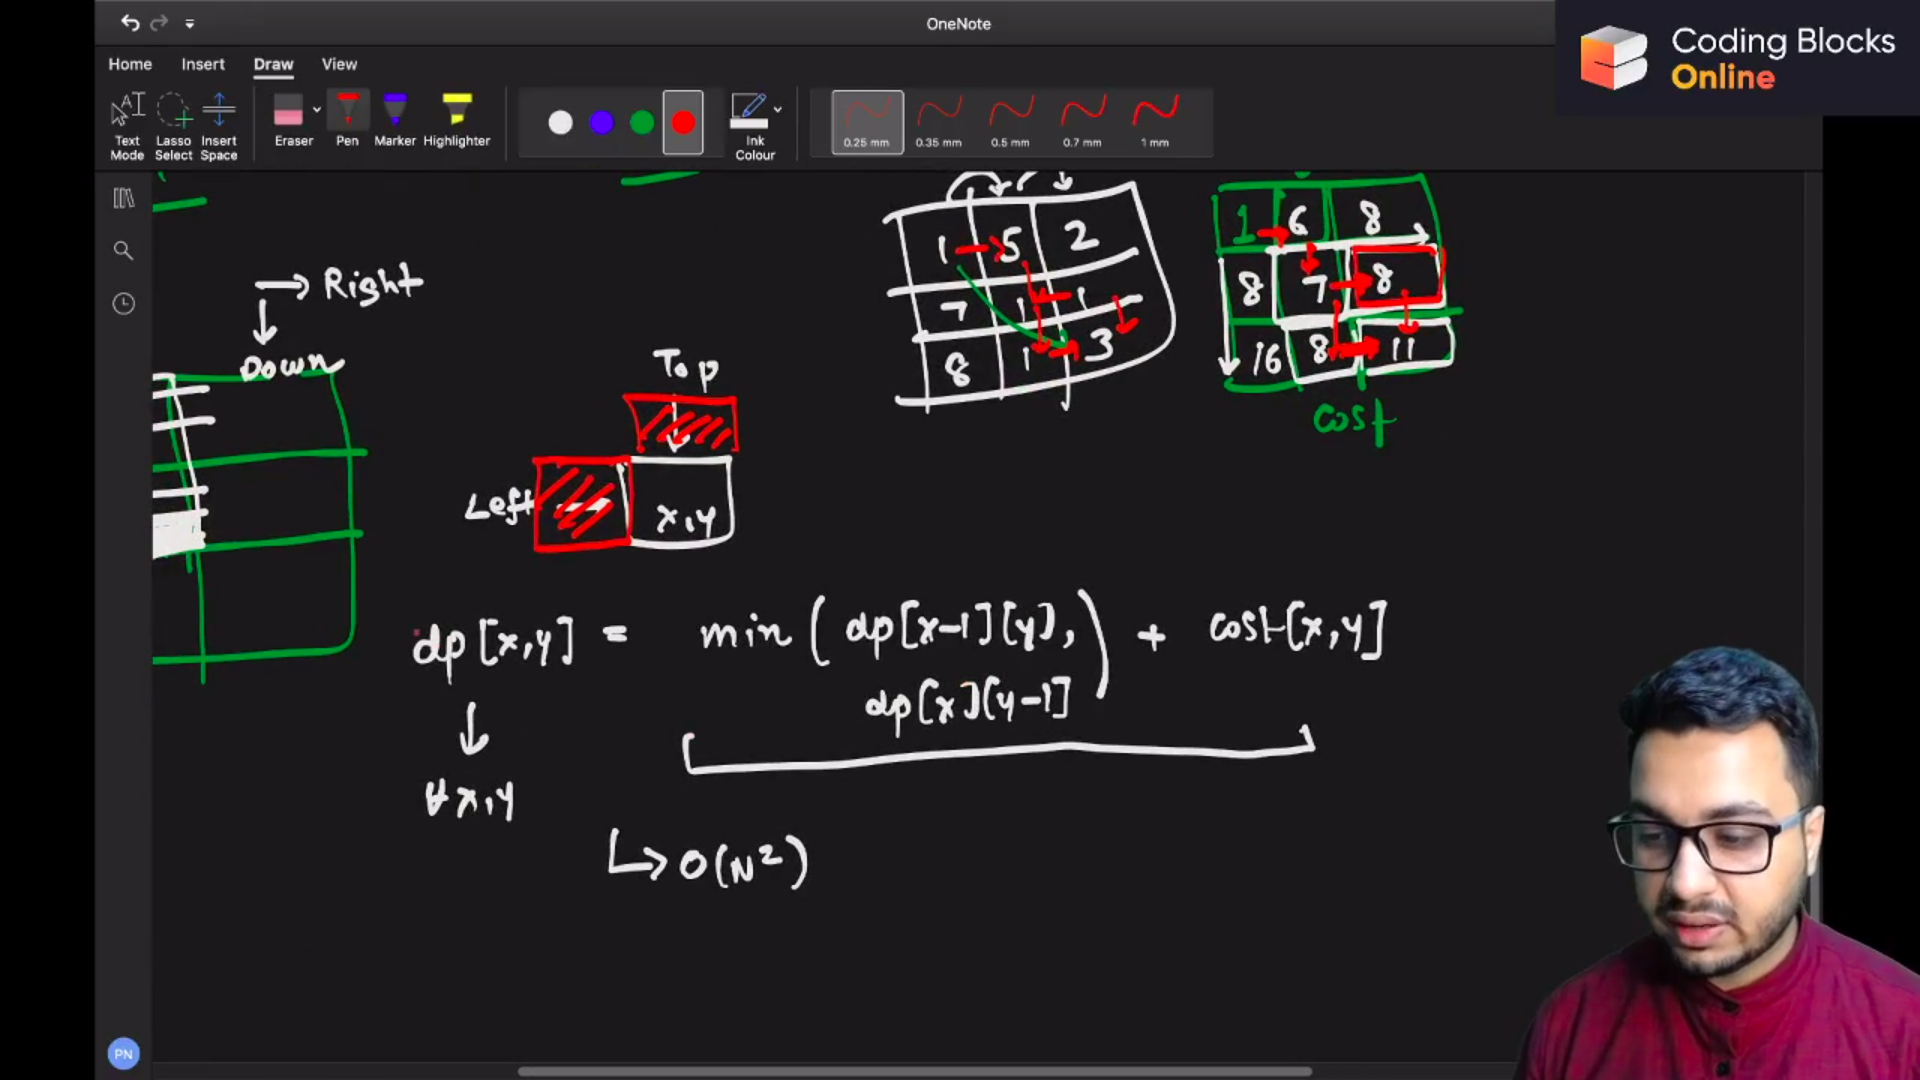 OneNote
Coding Blocks
Online
Home Insert Draw View
Text Mode
Lasso Select
Insert Space
Eraser
Pen
Marker
Highlighter
Ink Colour
0.25 mm
0.35 mm
0.5 mm
0.7 mm
1 mm
→ Right
↓
Down
Top
Left
x,y
1 5 2
7 1 1
8 1 3
1 6 8
8 7 8
16 8 11
cost
dp[x,y] = min(dp[x-1][y), + cost[x,y]
dp[x][y-1])
↓
∀x,y
↳ O(N²)
PN